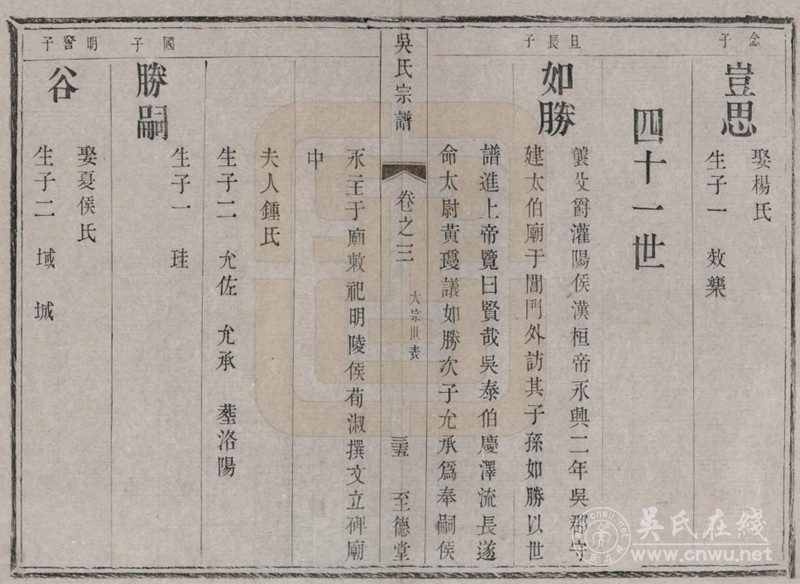 念子
豈思
娶楊氏
生子一 效樂
四十一世
且長子
如勝
襲父爵灌陽侯漢桓帝永興二年吳郡守
建太伯廟于閶門外訪其子孫如勝以世
譜進上帝覽曰賢哉吳泰伯慶澤流長遂
命太尉黃瓊議如勝次子允承爲奉嗣侯
吳氏宗譜
卷之三
大宗世表
至德堂
永主于廟敕祀明陵侯荀淑撰文立碑廟
中
夫人鍾氏
生子二 允佐 允承 塟洛陽
國子
勝嗣
生子一 珪
明警子
谷
娶夏侯氏
生子二 域 城
吳氏在线
www.cnwu.net